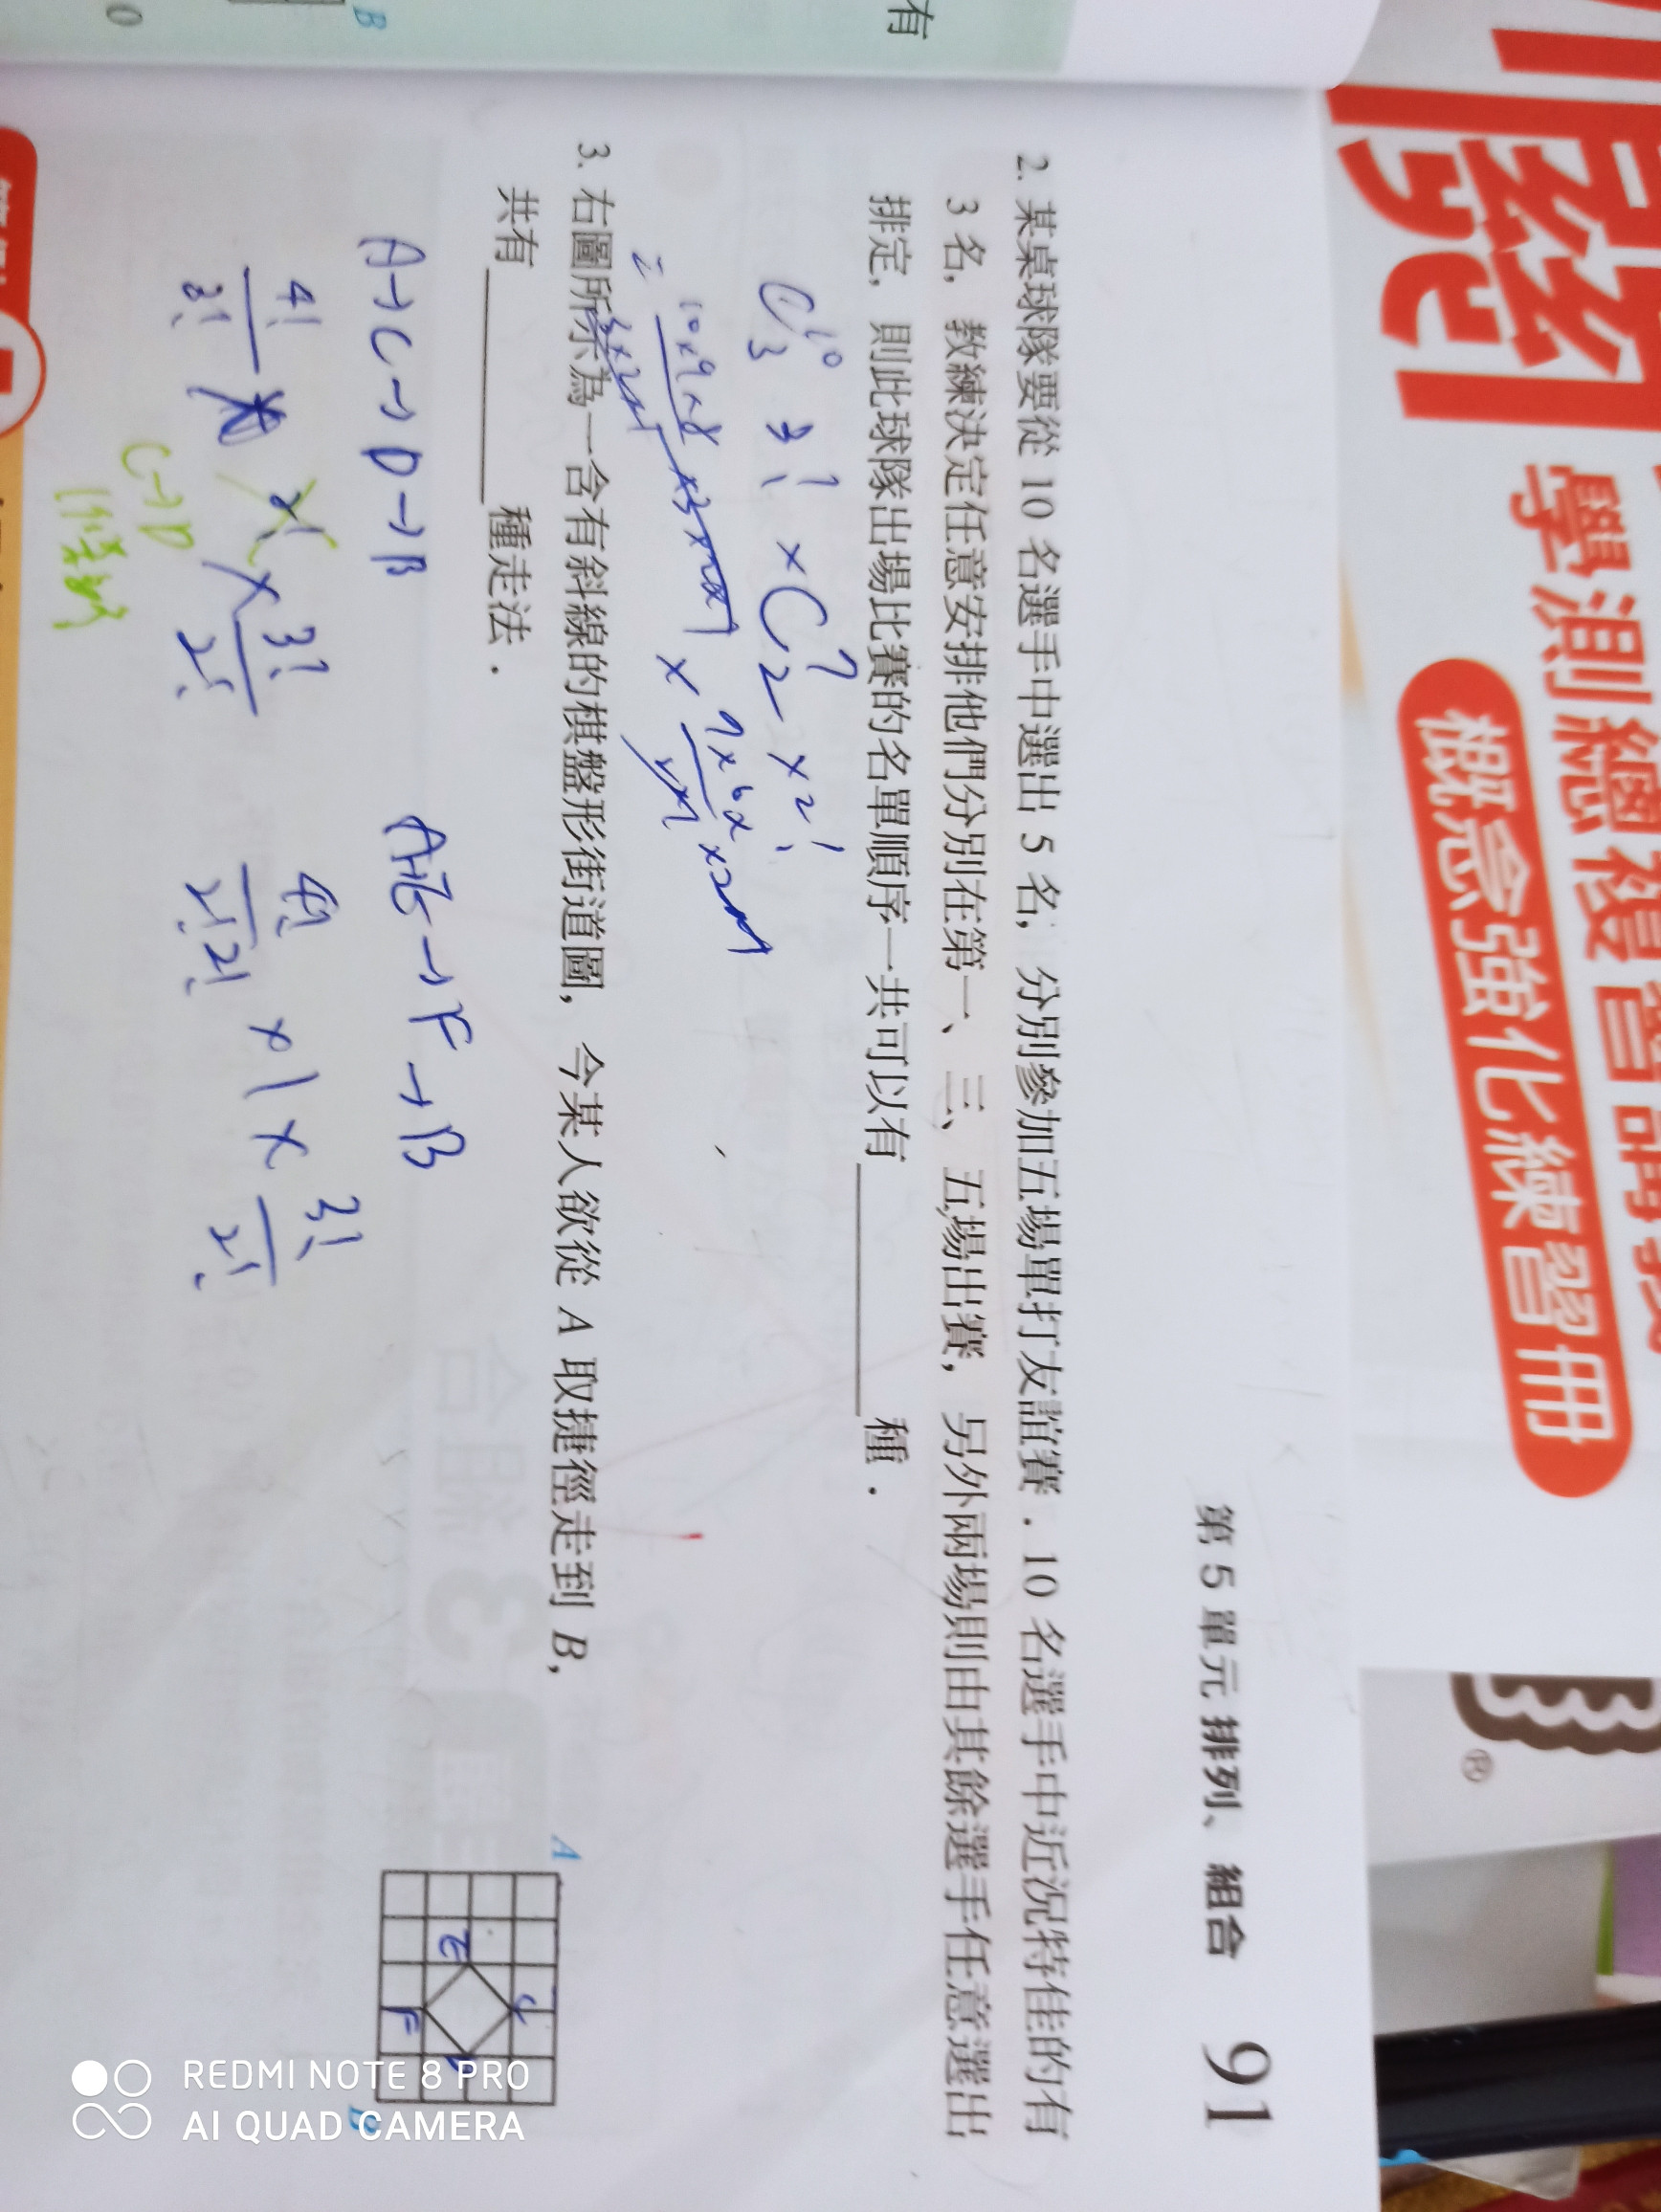 學測總複習講義
概念強化練習冊
®
有
B
0
第 5 單元 排列、組合 91
2. 某桌球隊要從 10 名選手中選出 5 名，分別參加五場單打友誼賽．10 名選手中近況特佳的有
3 名，教練決定任意安排他們分別在第一、三、五場出賽，另外兩場則由其餘選手任意選出
排定，則此球隊出場比賽的名單順序一共可以有________種．
C¹⁰₃ 3! × C⁷₂ × 2!
3. 右圖所示為一含有斜線的棋盤形街道圖，今某人欲從 A 取捷徑走到 B，
共有________種走法．
A
E
C
F
B
A→C→D→B
4!/3! × 3!/2!
C→D
A→E→F→B
4!/2!2! × 1 × 3!/2!
REDMI NOTE 8 PRO
AI QUAD CAMERA